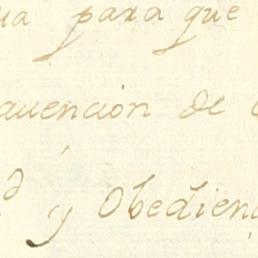 ua para que
auención de
y Obedienc